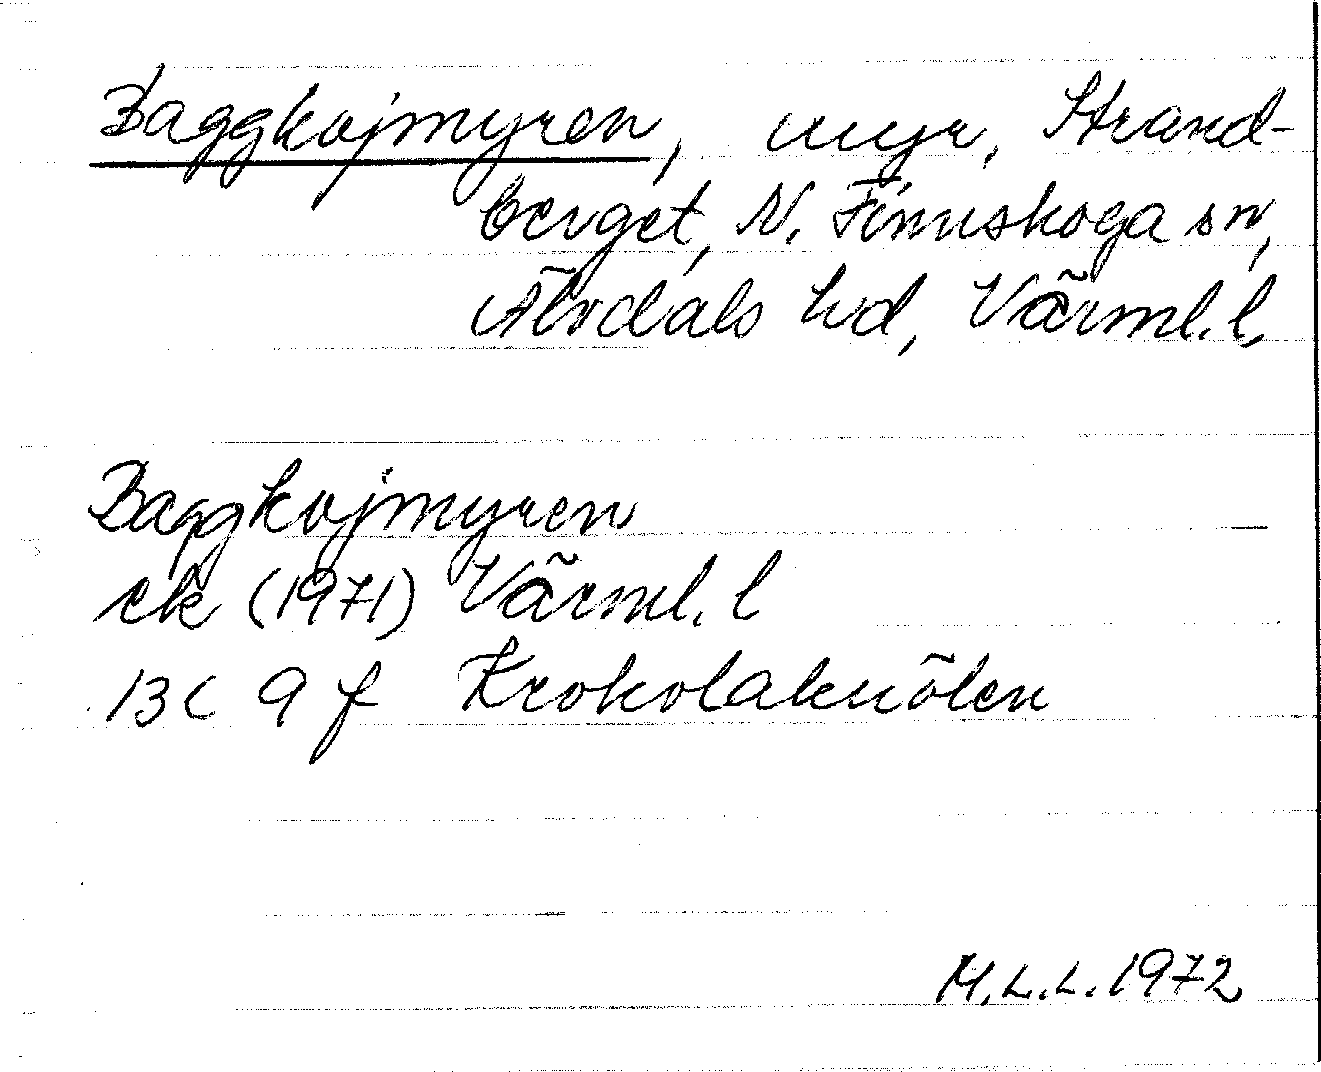 Baggkojmyren, myr, Strand-
berget, N. Finnskoga sn,
Älvdals hd, Värml. l.
Baggkojmyren
ek (1971) Värml. l
13C 9 f Krokolaknölen
M.L.L. 1972